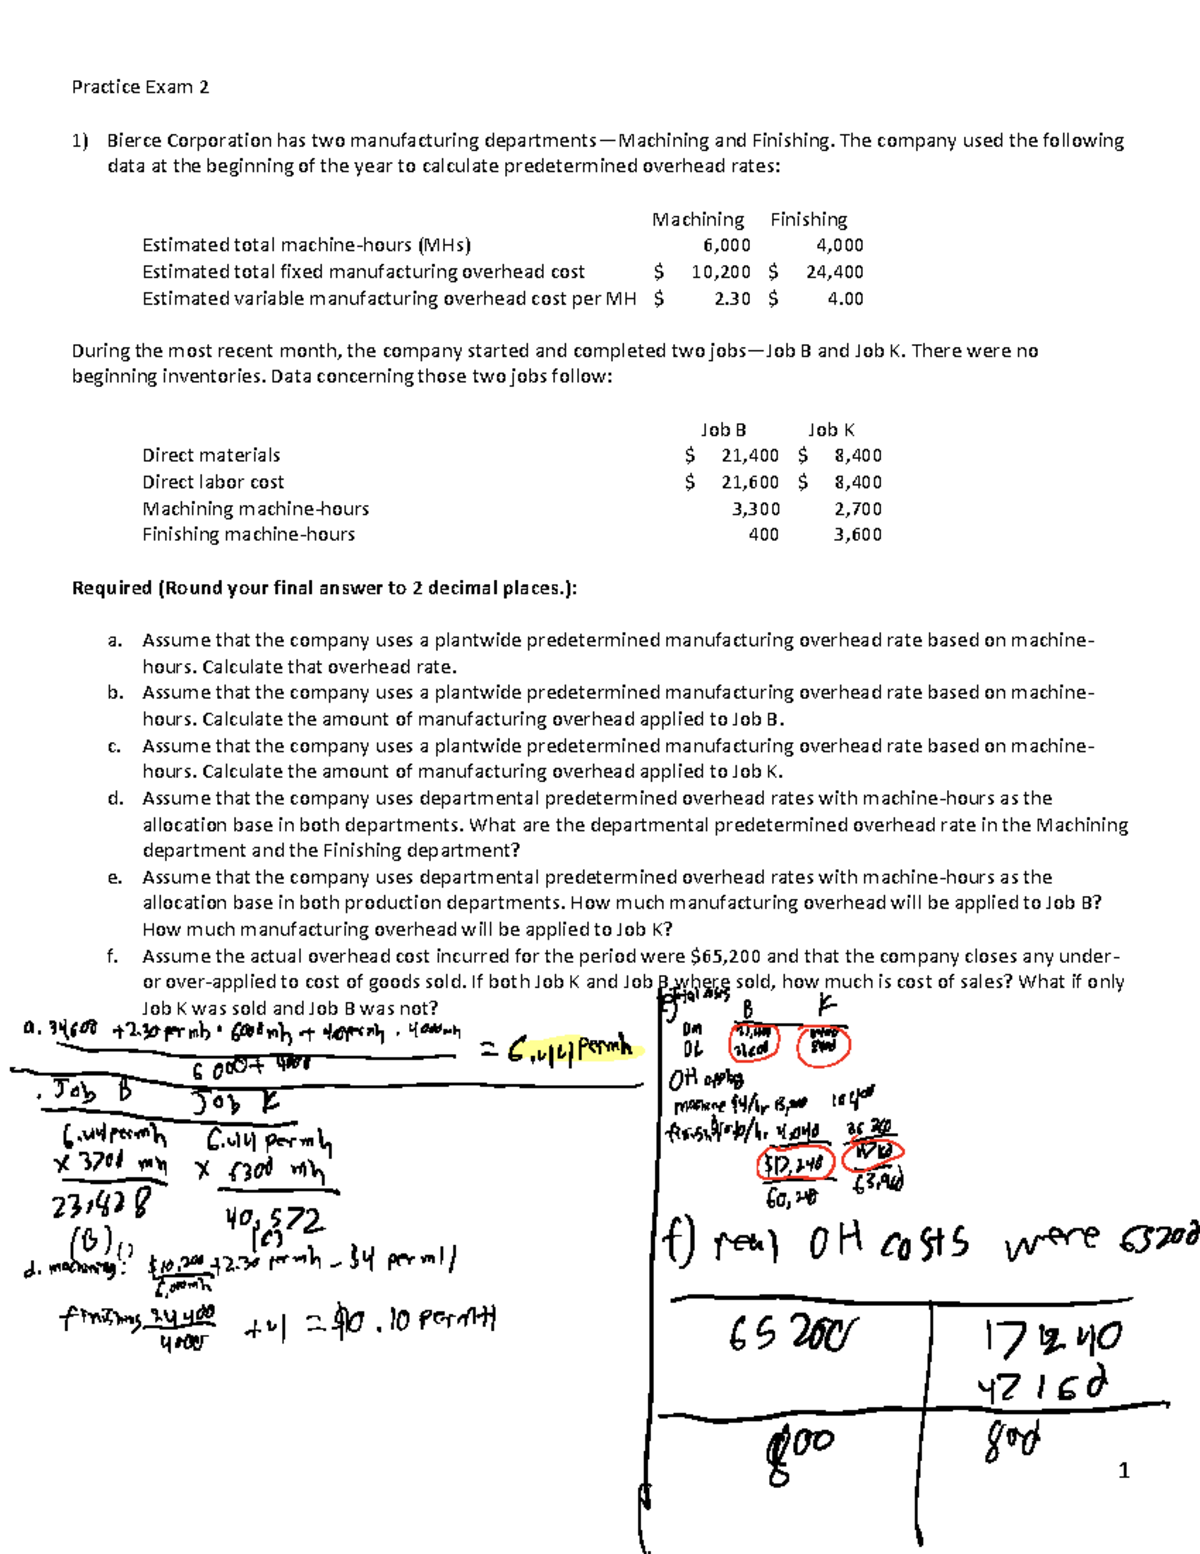 Practice Exam 2
1) Bierce Corporation has two manufacturing departments—Machining and Finishing. The company used the following
data at the beginning of the year to calculate predetermined overhead rates:
Machining Finishing
Estimated total machine-hours (MHs) 6,000 4,000
Estimated total fixed manufacturing overhead cost $ 10,200 $ 24,400
Estimated variable manufacturing overhead cost per MH $ 2.30 $ 4.00
During the most recent month, the company started and completed two jobs—Job B and Job K. There were no
beginning inventories. Data concerning those two jobs follow:
Job B Job K
Direct materials $ 21,400 $ 8,400
Direct labor cost $ 21,600 $ 8,400
Machining machine-hours 3,300 2,700
Finishing machine-hours 400 3,600
Required (Round your final answer to 2 decimal places.):
a. Assume that the company uses a plantwide predetermined manufacturing overhead rate based on machine-
hours. Calculate that overhead rate.
b. Assume that the company uses a plantwide predetermined manufacturing overhead rate based on machine-
hours. Calculate the amount of manufacturing overhead applied to Job B.
c. Assume that the company uses a plantwide predetermined manufacturing overhead rate based on machine-
hours. Calculate the amount of manufacturing overhead applied to Job K.
d. Assume that the company uses departmental predetermined overhead rates with machine-hours as the
allocation base in both departments. What are the departmental predetermined overhead rate in the Machining
department and the Finishing department?
e. Assume that the company uses departmental predetermined overhead rates with machine-hours as the
allocation base in both production departments. How much manufacturing overhead will be applied to Job B?
How much manufacturing overhead will be applied to Job K?
f. Assume the actual overhead cost incurred for the period were $65,200 and that the company closes any under-
or over-applied to cost of goods sold. If both Job K and Job B where sold, how much is cost of sales? What if only
Job K was sold and Job B was not?
a. 34600 +2.30 per mh • 6000 mh + 4.0 per mh . 4000 mh
6000 + 4000
= 6.44 per mh
Job B Job K
6.44 per mh 6.44 per mh
x 3700 mh x 6300 mh
23,828 40,572
(B) (C)
d. machining: $10,200 +2.30 per mh = $4 per mh
6,000 mh
finishing 24400 +4 = $10.10 per MH
4000
B K
DM
DL
OH
machine $4/hr
$17,240
60,240 63,960
f) real OH costs were 65200
65200 17240
47160
800 800
1